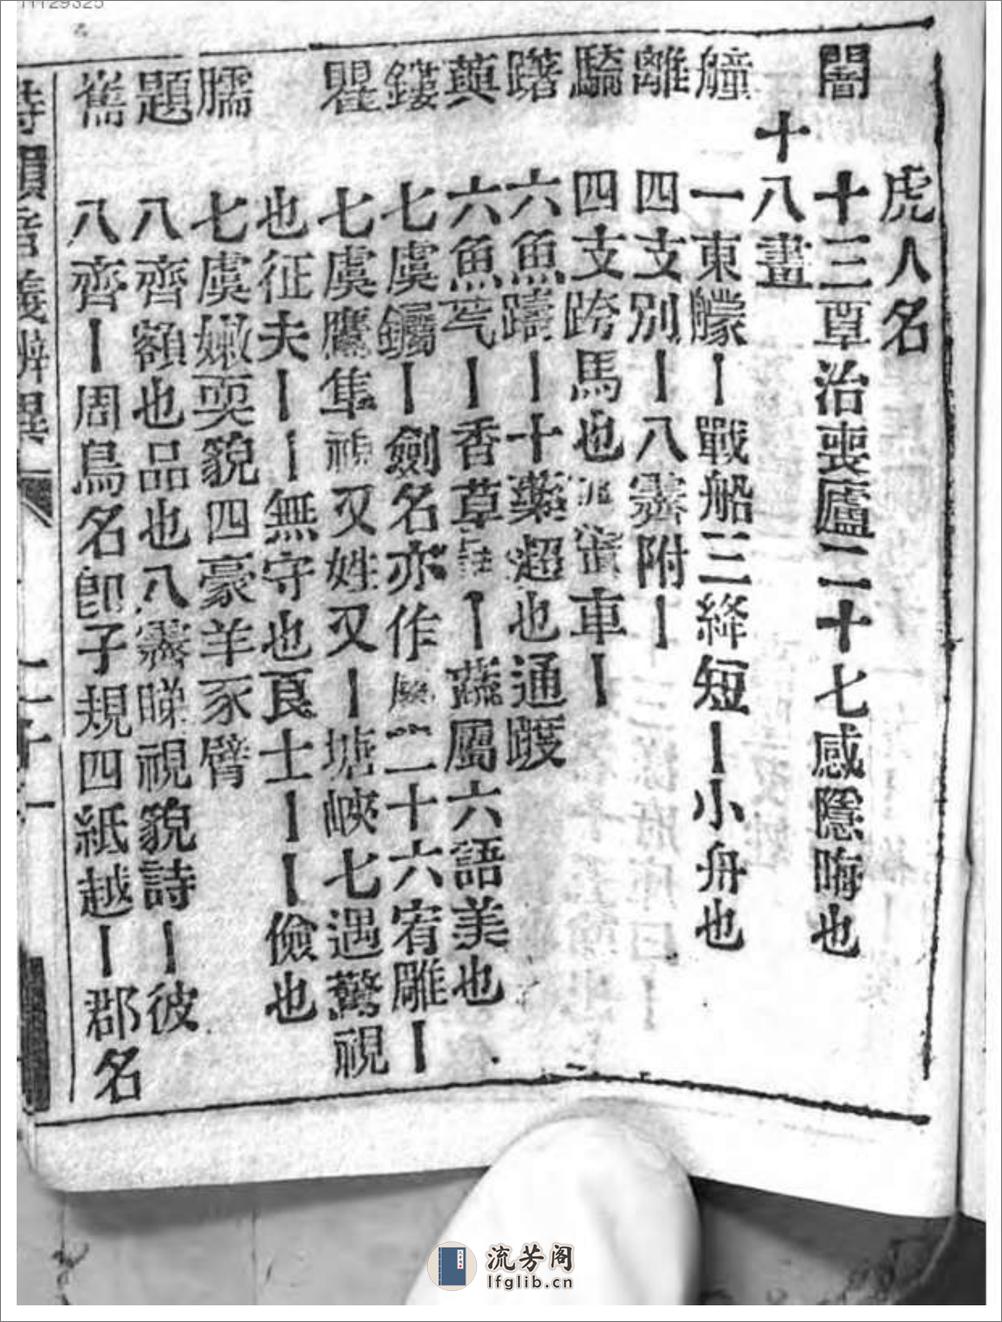 11129325
虎人名
闇 十三覃治喪廬二十七感隱晦也
十八畫
艟 一東艨丨戰船三絳短丨小舟也
離 四支別丨八霽附丨
騎 四支跨馬也 車丨
躇 六魚躊丨十藥超也通踱
藇 六魚芎丨香草 丨蔬屬六語美也
鏤 七虞鐲丨劍名亦作 二十六宥雕丨
瞿 七虞鷹隼視又姓又丨塘峽七遇驚視
也征夫丨丨無守也良士丨丨儉也
臑 七虞嫩耎貌四豪羊豕臂
題 八齊額也品也八霽睇視貌詩丨彼
嶲 八齊丨周鳥名卽子規四紙越丨郡名
詩韻音義辨異
二十一
流芳阁
lfglib.cn